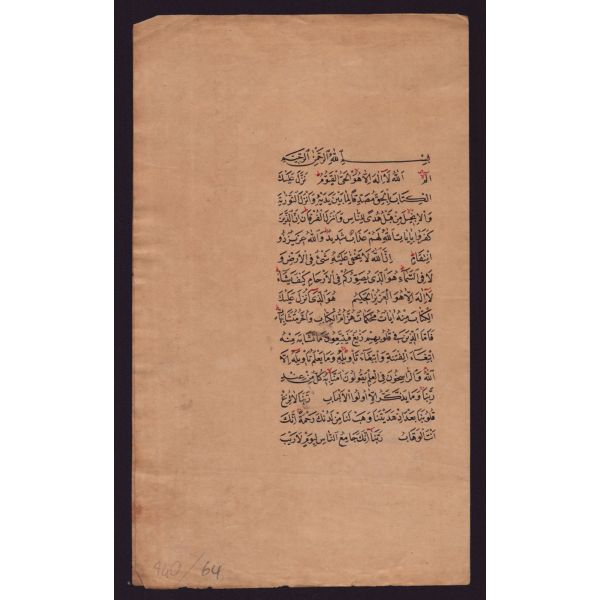 بسم الله الرحمن الرحيم
الم الله لا اله الا هو الحي القيوم نزل عليك
الكتاب بالحق مصدقا لما بين يديه وانزل التورية
والانجيل من قبل هدى للناس وانزل الفرقان ان الذين
كفروا بايات الله لهم عذاب شديد والله عزيز ذو
انتقام ان الله لا يخفى عليه شئ في الارض و
لا في السماء هو الذي يصوركم في الارحام كيف يشاء
لا اله الا هو العزيز الحكيم هو الذي انزل عليك
الكتاب منه ايات محكمات هن ام الكتاب واخر متشابهات
فاما الذين في قلوبهم زيغ فيتبعون ما تشابه منه
ابتغاء الفتنة وابتغاء تاويله وما يعلم تاويله الا
الله والراسخون في العلم يقولون امنا به كل من عند
ربنا وما يذكر الا اولوا الالباب ربنا لا تزغ
قلوبنا بعد اذ هديتنا وهب لنا من لدنك رحمة انك
انت الوهاب ربنا انك جامع الناس ليوم لا ريب
940/64